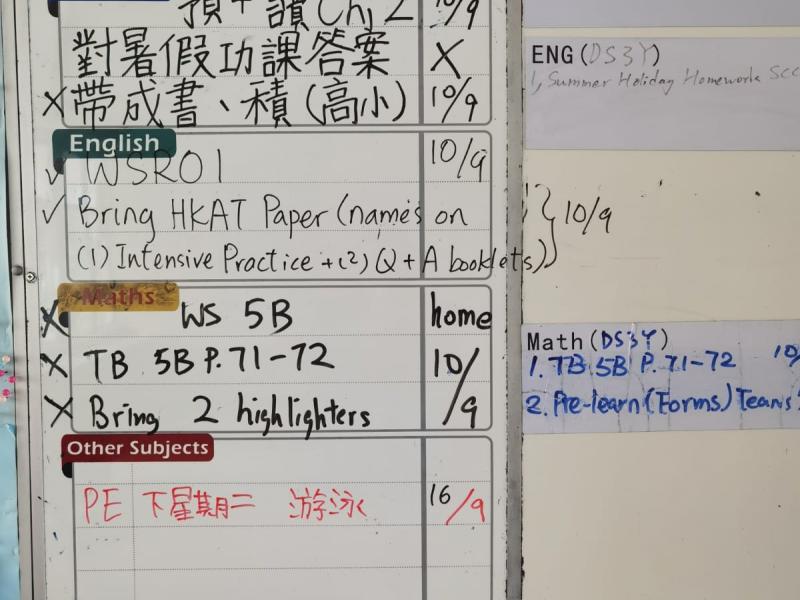 預+讀Ch,2 10/9
對暑假功課答案 X
X 帶成書、積(高小) 10/9
English
✓ WSR01 10/9
✓ Bring HKAT Paper (names on
(1) Intensive Practice +(2) Q + A booklets) } 10/9
Maths
X WS 5B home
X TB 5B P.71-72 10/
X Bring 2 highlighters /9
Other Subjects
PE 下星期二 游泳 16/9
ENG(DS3Y)
1, Summer Holiday Homework
Math(DS3Y)
1. TB 5B P.71-72 10/
2. Pre-learn (Forms) Teams